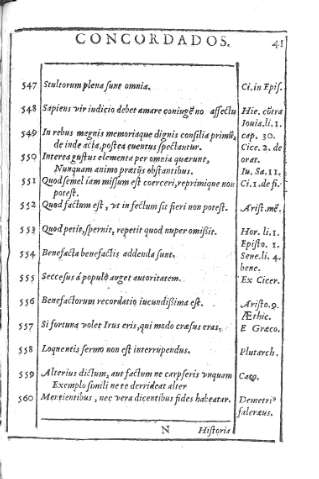 CONCORDADOS. 41
547 Stultorum plena sunt omnia. Ci. in Epis.
548 Sapiens vir iudicio debet amare coniugē no affectu Hie. cōtra
Iouia. li. 1.
549 In rebus magnis memoriaque dignis consilia primū, cap. 30.
de inde acta, postea euentus spectantur. Cice. 2. de
550 Interea gustus elementa per omnia quærunt, orat.
Nunquam animo prætijs obstantibus. Iu. Sa. 11.
551 Quod semel iam missum est coerceri, reprimique non Ci. 1. de fi.
potest.
552 Quod factum est, vt infectum sit fieri non potest. Arist.
553 Quod petit, spernit, repetit quod nuper omißit. Hor. li. 1.
Episto. 1.
554 Benefacta benefactis addenda sunt. Sene. li. 4.
bene.
555 Seccesus á populo auget autoritatem. Ex Cicer.
556 Benefactorum recordatio iucundißima est. Aristo. 9.
Æthic.
557 Si fortuna volet Irus eris, qui modo cræsus eras, E Græco.
558 Loquentis sermo non est interrupendus. Plutarch.
559 Alterius dictum, aut factum ne carpseris vnquam Cato.
Exemplo simili ne te derrideat alter
560 Mentientibus, nec vera dicentibus fides habeatur. Demetri⁹
falereus.
N Historia